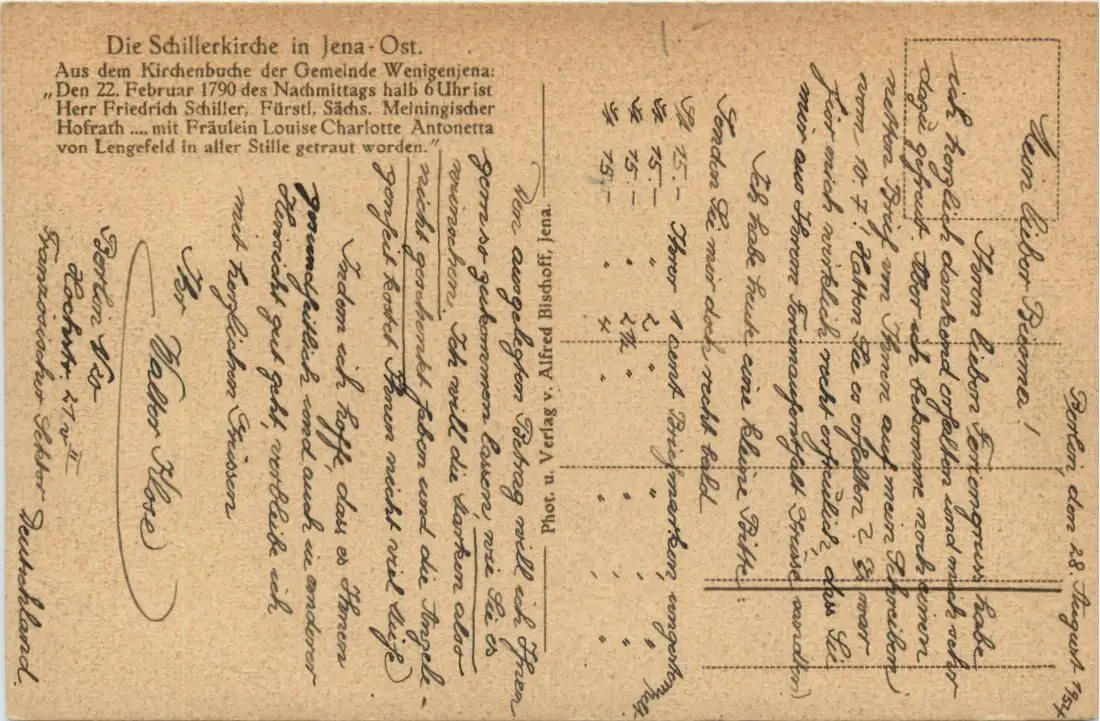 Die Schillerkirche in Jena-Ost.
Aus dem Kirchenbuche der Gemeinde Wenigenjena:
„Den 22. Februar 1790 des Nachmittags halb 6 Uhr ist
Herr Friedrich Schiller, Fürstl. Sächs. Meiningischer
Hofrath .... mit Fräulein Louise Charlotte Antonetta
von Lengefeld in aller Stille getraut worden."
Phot. u. Verlag v. Alfred Bischoff, Jena.
Berlin, den 28. August 1954
Mein lieber Beome!
Ihren lieben Feriengruss habe
ich herzlich dankend erhalten und mich sehr
dazu gefreut. Aber ich bekomme noch einen
netten Brief von Ihnen auf mein Schreiben
vom 10. 7.! Hatten Sie es erhalten? Es war
für mich wirklich recht erfreulich, dass Sie
mir aus Ihrem Ferienaufenthalt Grüsse sandten.
Ich habe heute eine kleine Bitte:
Senden Sie mir doch recht bald
15.- Ihrer 1 cent Briefmarken, ungestempelt.
15.- " 2 " " " "
15.- " 2½ " " " "
15.- " 4 " " " "
Den ausgelegten Betrag will ich Ihnen
gern so zukommen lassen, wie Sie es
wünschen. Ich will die Marken also
nicht geschenkt haben und die Angele-
genheit kostet Ihnen nicht viel
Indem ich hoffe, dass es Ihnen
gesundheitlich und auch in anderer
Hinsicht gut geht, verbleibe ich
mit herzlichen Grüssen
Ihr Walter Klose
Berlin
Hochstr. 27 v II
Französischer Sektor Deutschland.